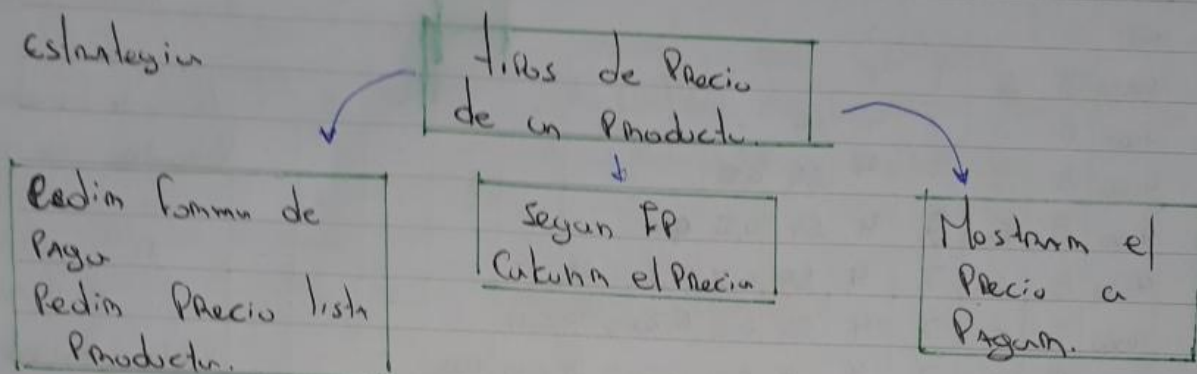 Estrategia
tipos de Precio
de un Producto.
Pedir forma de
Pago
Pedir Precio lista
Producto.
Segun FP
Calcular el Precio
Mostrar el
Precio a
Pagar.